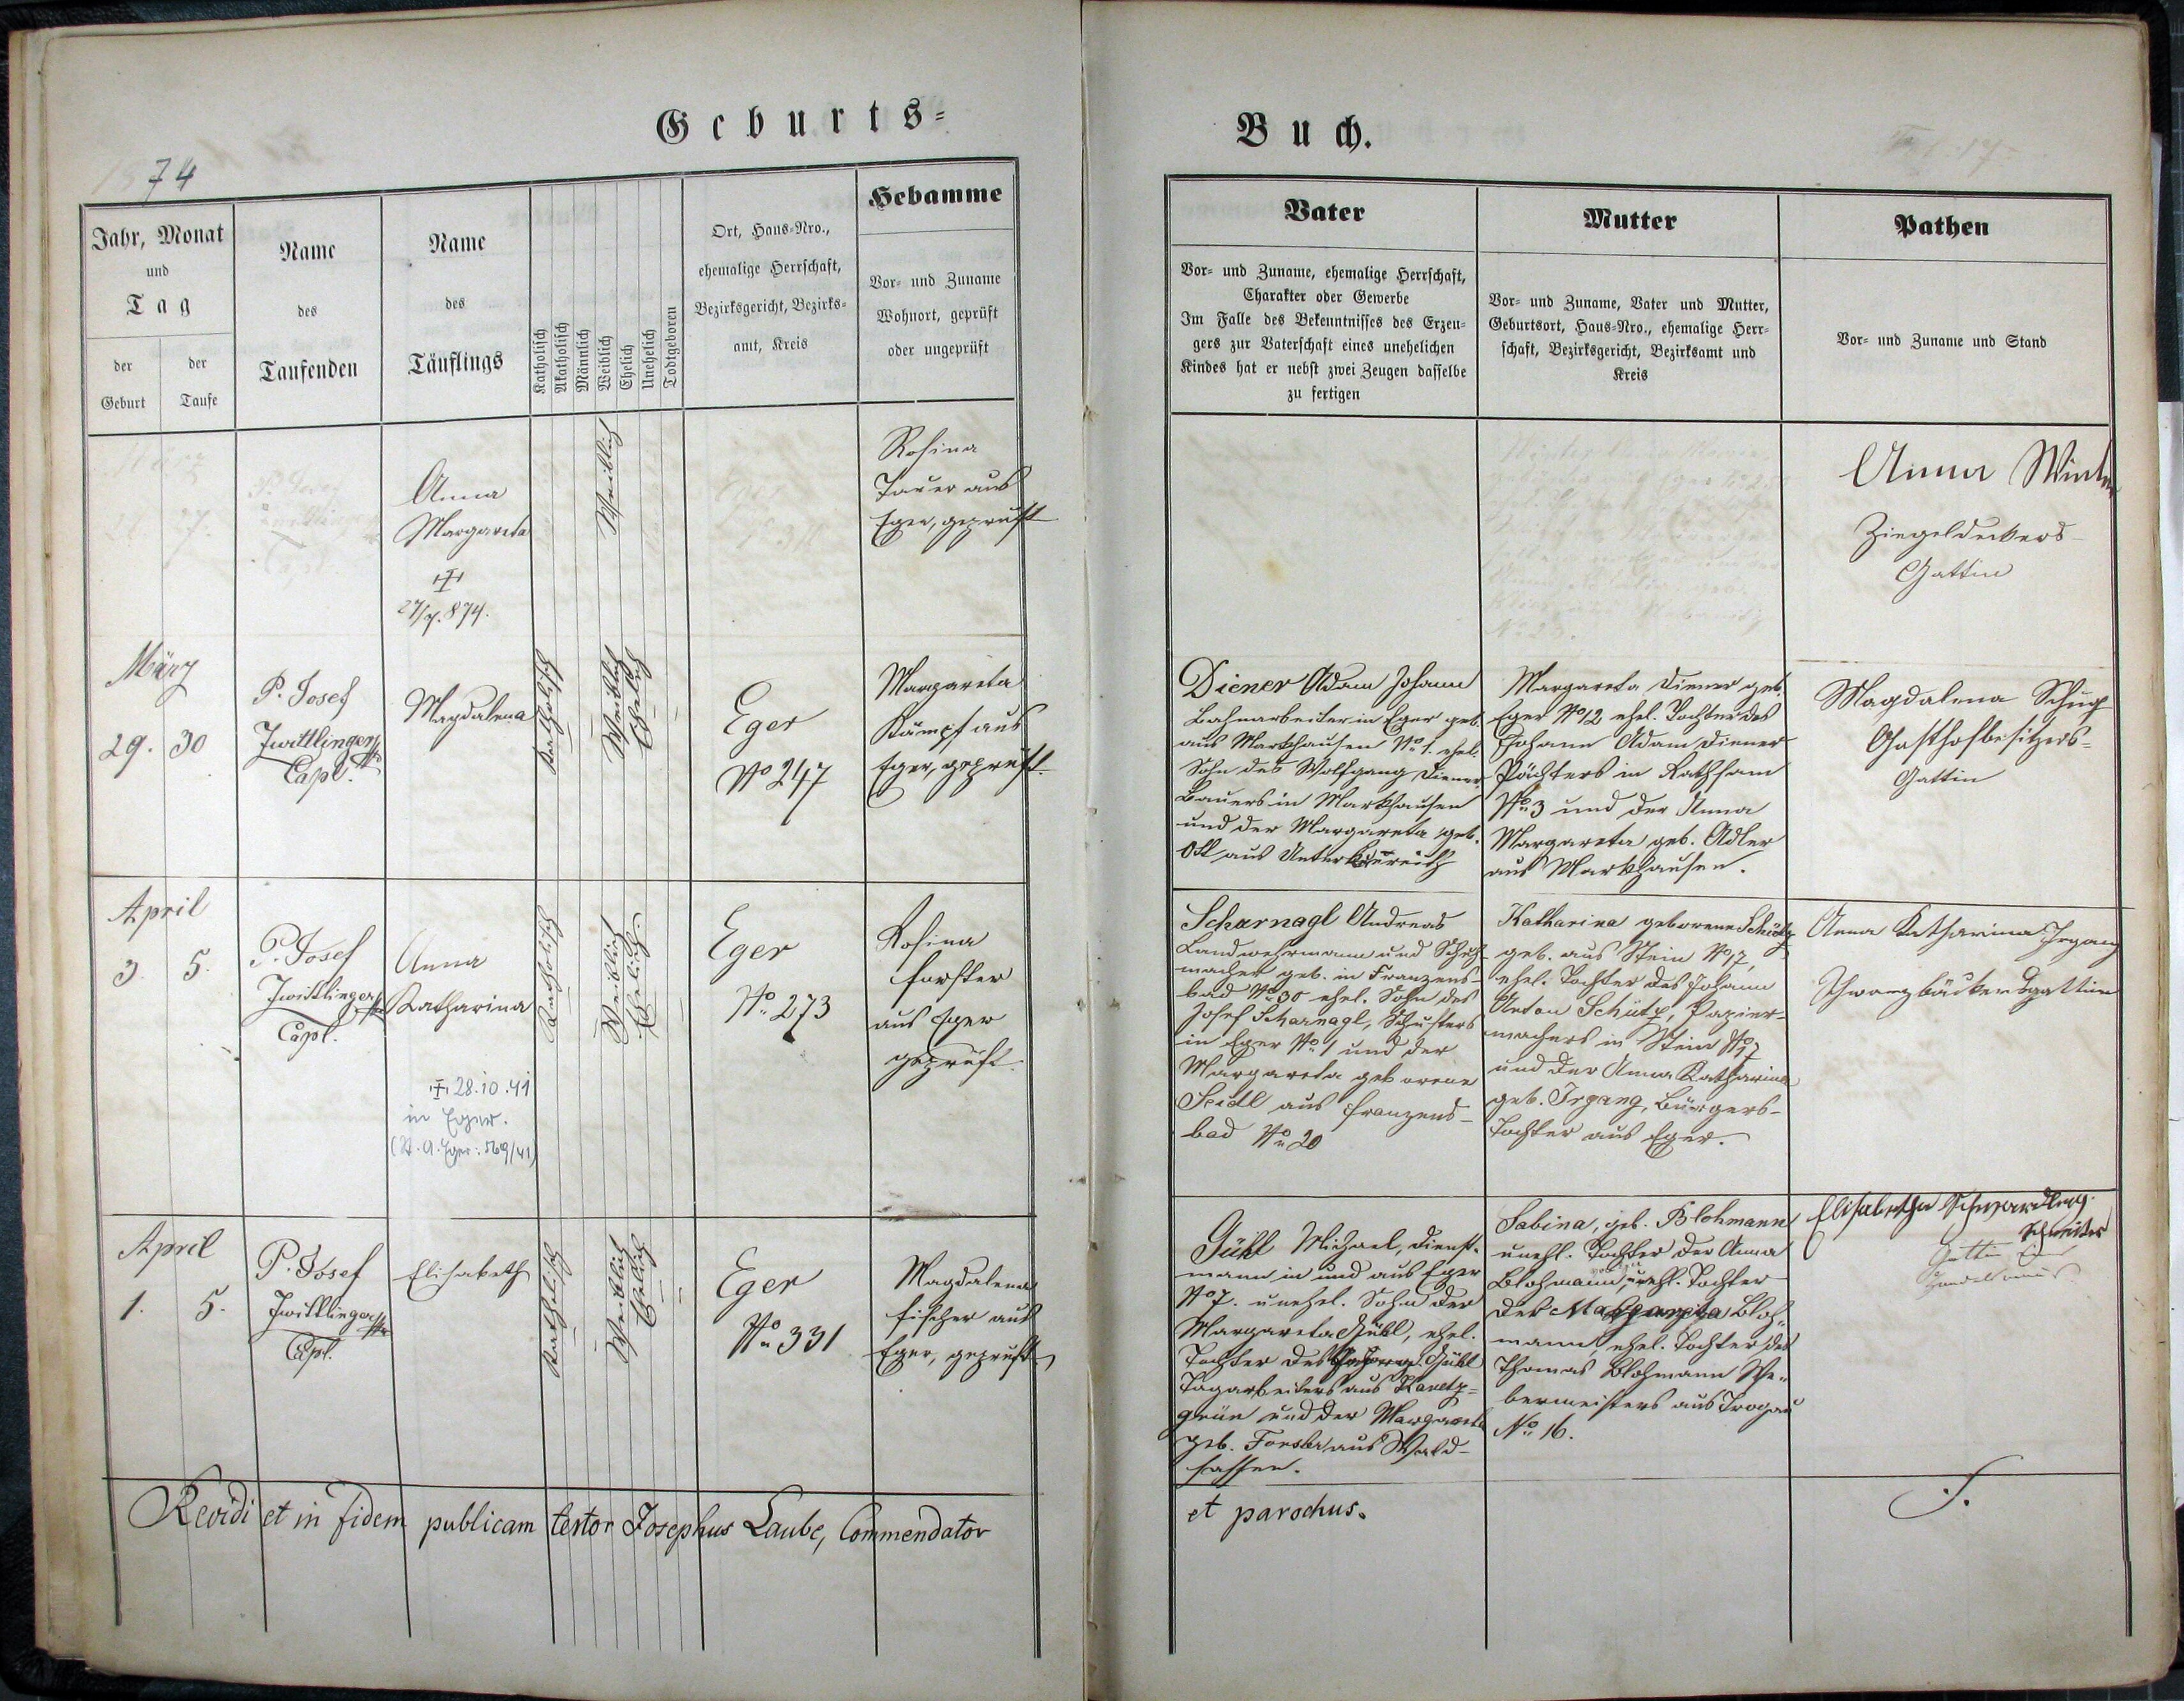 Geburts-
Buch.
1874
Jahr, Monat
und
Tag
der
Geburt
der
Taufe
Name
des
Taufenden
Name
des
Täuflings
Katholisch
Akatholisch
Männlich
Weiblich
Ehelich
Unehelich
Todtgeboren
Ort, Haus-Nro.,
ehemalige Herrschaft,
Bezirksgericht, Bezirks-
amt, Kreis
Hebamme
Vor- und Zuname
Wohnort, geprüft
oder ungeprüft
Vater
Vor- und Zuname, ehemalige Herrschaft,
Charakter oder Gewerbe
Im Falle des Bekenntnisses des Erzeu-
gers zur Vaterschaft eines unehelichen
Kindes hat er nebst zwei Zeugen dasselbe
zu fertigen
Mutter
Vor- und Zuname, Vater und Mutter,
Geburtsort, Haus-Nro., ehemalige Herr-
schaft, Bezirksgericht, Bezirksamt und
Kreis
Pathen
Vor- und Zuname und Stand
März
27.
P. Josef
Capl.
Anna
Margareta
27/7. 874.
Weiblich
Eger
Rosina
aus
Eger, geprüft
Anna
Ziegeldeckers-
Gattin
März
29. 30
P. Josef
Zwittlinger
Capl.
Magdalena
Katholisch
Weiblich
Ehelich
Eger
No 247
Margareta
Kämpf aus
Eger, geprüft.
Diener Adam Johann
Bahnarbeiter in Eger geb.
aus Markhausen No 1. ehel.
Sohn des Wolfgang Diener
Bauers in Markhausen
und der Margareta geb.
Ott aus
Margareta Diener geb.
Eger No 12 ehel. Tochter des
Johann Adam Diener
Pächters in Rathsam
No 3 und der Anna
Margareta geb. Adler
aus Markhausen.
Magdalena
Gasthofbesitzers-
Gattin
April
3. 5.
P. Josef
Zwittlinger
Capl.
Anna
Katharina
28.10.41
in Eger.
(St. A. Eger: 569/41)
Katholisch
Weiblich
Ehelich.
Eger
No 273
Rosina
Forster
aus Eger
geprüft.
Scharnagl Andreas
Landwehrmann und Schuh-
macher geb. in Franzens-
bad No 30 ehel. Sohn des
Josef Scharnagl, Schusters
in Eger No 1 und der
Margareta geborene
Seidl aus Franzens-
bad No 20
Katharina geborene Schütz
geb. aus Stein No 17,
ehel. Tochter des Johann
Anton Schütz, Papier-
machers in Stein No 17
und der Anna Katharina
geb. Irgang, Bürgers-
tochter aus Eger.
Anna Katharina Irgang
Schwarzbäckersgattin
April
1. 5.
P. Josef
Zwittlinger
Capl.
Elisabeth
Katholisch
Weiblich
Ehelich
Eger
No 331
Magdalena
Fischer aus
Eger, geprüft
Gükl Michael, Dienst-
mann in und aus Eger
No 7. unehel. Sohn der
Margareta Gükl, ehel.
Tochter des Gükl
Tagarbeiters aus
grün und der Margareta
geb. Forster aus Wald-
sassen.
Sabina, geb. Blohmann
unehl. Tochter der Anna
Blohmann, unehl. Tochter
der Margareta Bloh-
mann ehel. Tochter des
Thomas Blohmann We-
bermeisters aus Trogau
No 16.
Elisabetha
Gattin
Revidi et in fidem publicam testor Josephus Laube, Commendator
et parochus.